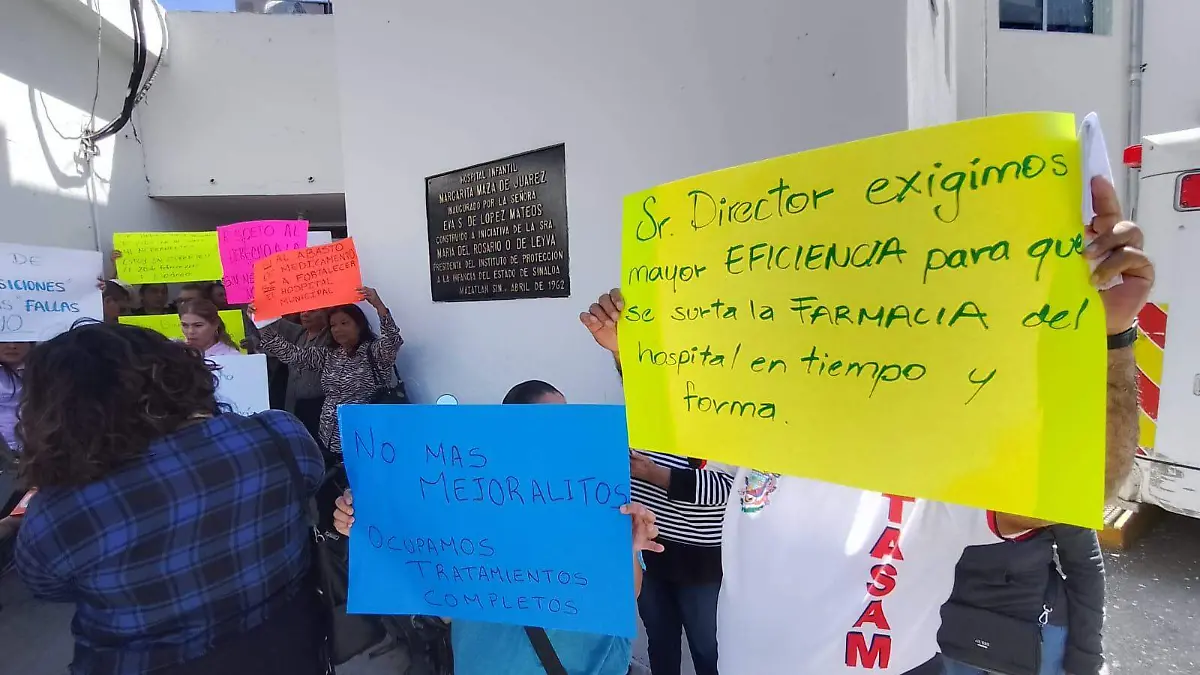 DE
SICIONES
FALLAS
NO
AL ABASTO
MEDICAMENTO
A FORTALECER
HOSPITAL
MUNICIPAL
HOSPITAL INFANTIL
MARGARITA MAZA DE JUAREZ
INAUGURADO POR LA SEÑORA
EVA S. DE LOPEZ MATEOS
CONSTRUIDO A INICIATIVA DE LA SRA.
MARIA DEL ROSARIO O. DE LEYVA
PRESIDENTE DEL INSTITUTO DE PROTECCION
A LA INFANCIA DEL ESTADO DE SINALOA
MAZATLAN SIN. ABRIL DE 1962
Sr. Director exigimos
mayor EFICIENCIA para que
se surta la FARMACIA del
hospital en tiempo y
forma.
NO MAS
MEJORALITOS
OCUPAMOS
TRATAMIENTOS
COMPLETOS
TASAM